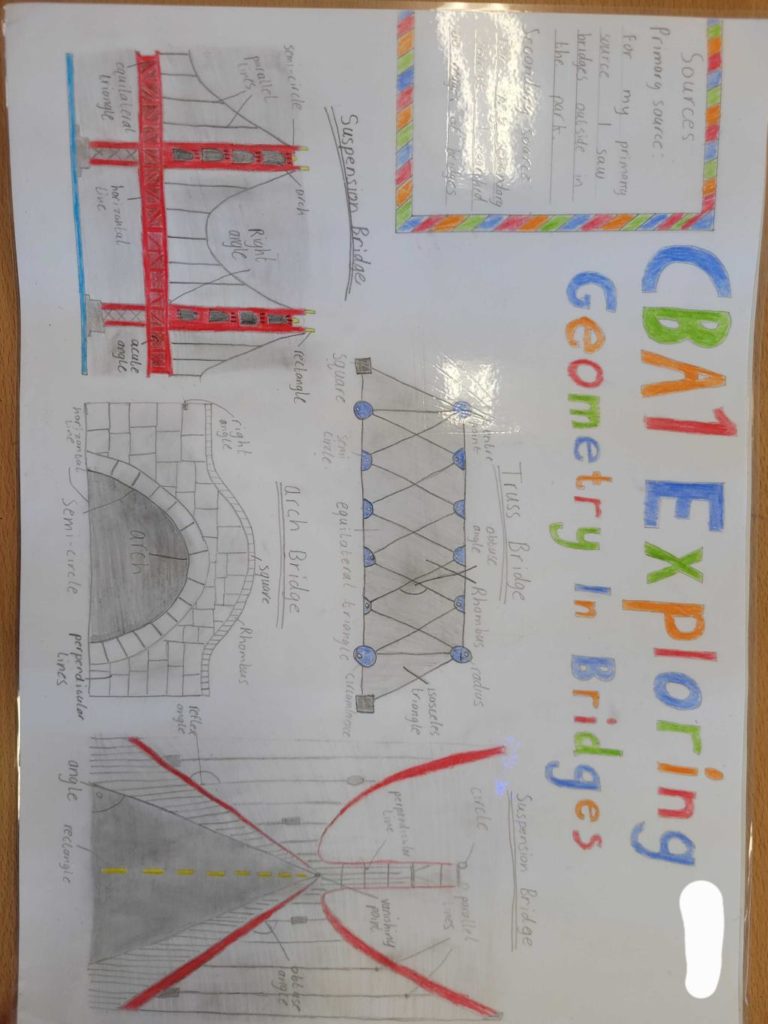 CBA1 Exploring
Geometry In Bridges
Sources
Primary source:
for my primary
source I saw
bridges outside in
the park.
Secondary source
secondary
Suspension Bridge
semi-circle
parallel
lines
equilateral
triangle
arch
horizontal
line
Right
angle
rectangle
acute
angle
Truss Bridge
point
obtuse
angle
Rhombus
radius
square
semi
circle
equilateral triangle
isosceles
triangle
arch Bridge
right
angle
square
Rhombus
horizontal
line
arch
semi-circle
perpendicular
lines
Suspension Bridge
circle
perpendicular
line
parallel
lines
vanishing
point
reflex
angle
obtuse
angle
angle
rectangle